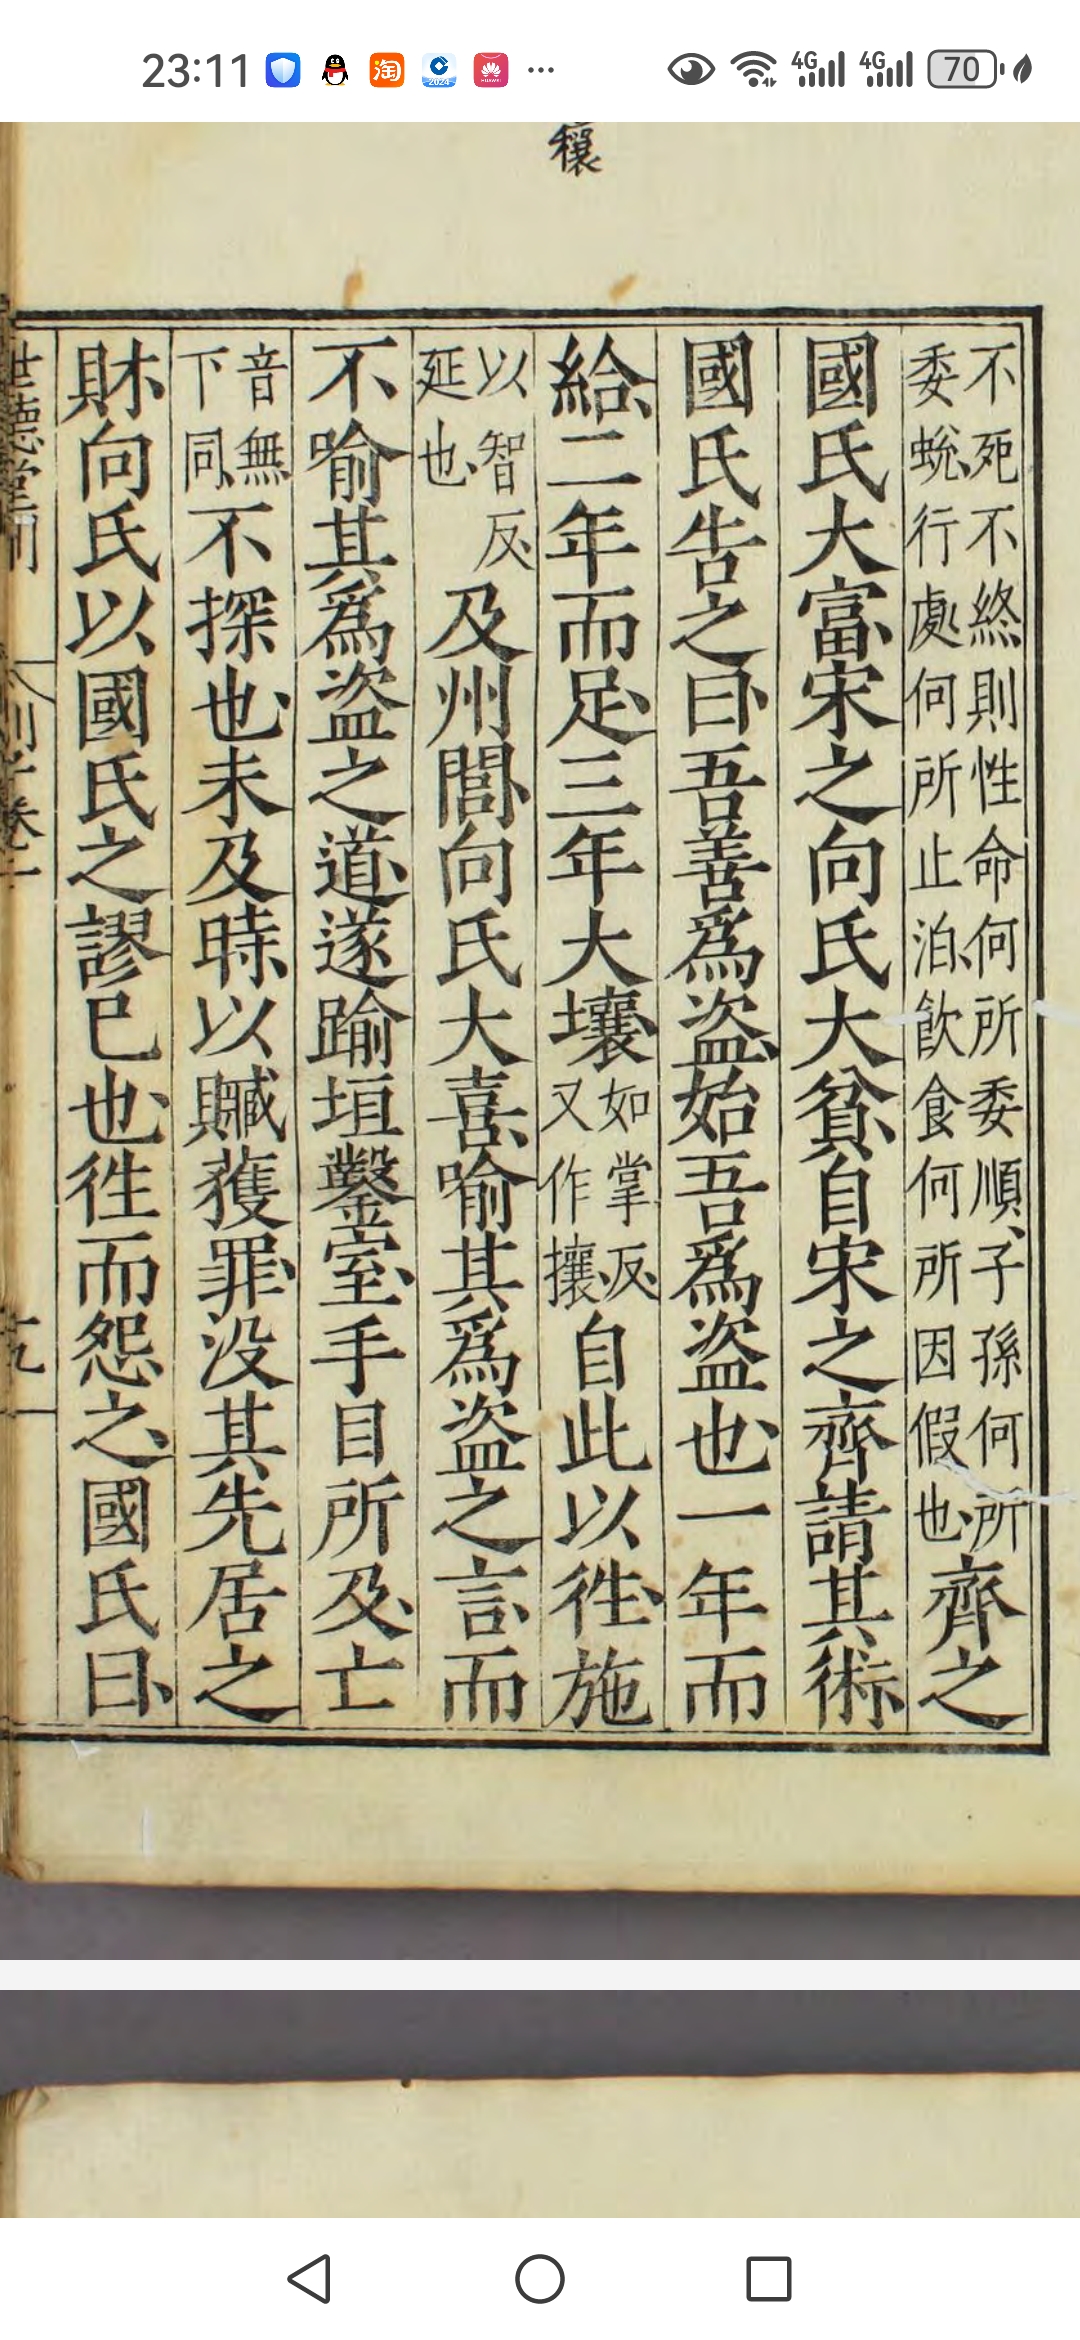 23:11
4G 4G 70
穰
不死不終則性命何所委順子孫何所
委蛻行處何所止泊飲食何所因假也
齊之
國氏大富宋之向氏大貧自宋之齊請其術
國氏告之曰吾善爲盜始吾爲盜也一年而
給二年而足三年大壤
如掌反
又作攘
自此以徃施
以智反
延也
及州閭向氏大喜喻其爲盜之言而
不喻其爲盜之道遂踰垣鑿室手目所及亡
音無
下同
不探也未及時以贓獲罪没其先居之
財向氏以國氏之謬已也徃而怨之國氏曰
世德堂刊